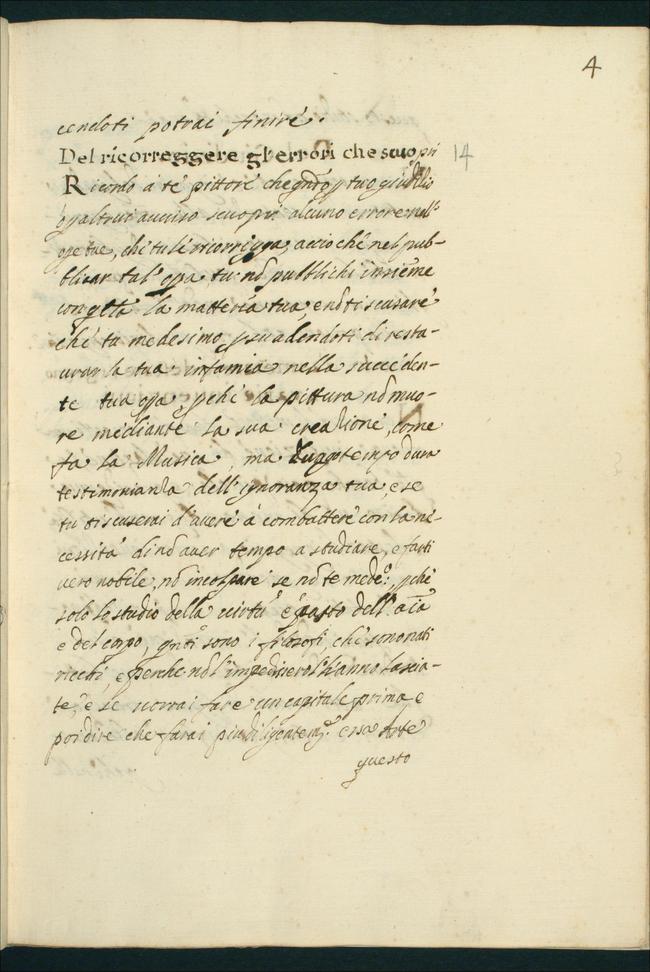 4
cendoti potrai finire.
Del ricorreggere gl'errori che scuopri 14
Ricordo à té pittore che qñdo p tuo giuditio
ò p altrui auuiso scuopri alcuno errore nell'
ope tue, che tu lé ricorriga, acciochè nel pub-
blicar tal' opa tu nõ pubblichi insieme
con qlla la matteria tua, e nõ ti scusare
ché tu medesimo, psuadendoti di resta-
urar la tua infamia nella succéden-
te tua opa, pché la pittura nõ muo-
re médiante la sua creazioné, come
fa la Musica, ma lungo tempo dura
testimonianza dell' ignoranza tua, e se
tu ti scuserai d'averé à combatteré con la né-
cessità di nõ aver tempo a studiare, e farti
vero nobile, nõ incolpare se nõ te medeo:, pché
solo lo studio della virtù é pasto dell' aĩa
e del corpo, qñti sono i filosofi, ché sono nati
ricchi, e perche nõ l'impedisero l'hanno lascia-
te, é se vorrai fare un capitale prima, e
poi dire che farai piu diligentemte. essa Arte
questo